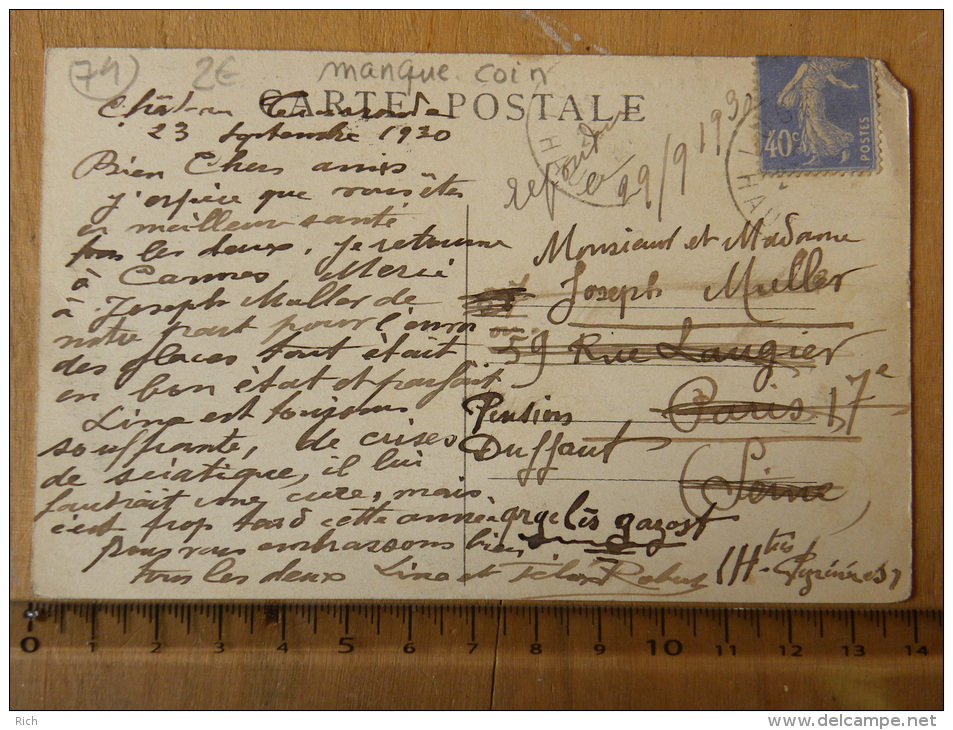 (79) 2€ manque coin
CARTE POSTALE
23 Septembre 1930
Bien Chers amis
j'espère que vous êtes
en meilleur santé
tous les deux. Je retourne
à Cannes. Merci
à Joseph Muller de
notre part pour l'envoi
des glaces tout était
en bon état et parfait
Line est toujours
souffrante, de crises
de sciatique, il lui
faudrait une cure, mais
c'est trop tard cette année.
nous vous embrassons bien
tous les deux Line et
29/9 1930
40c
POSTES
Monsieur et Madame
Joseph Muller
59 Rue Laugier
Paris 17e
Pension
Duffaut
(Seine)
argelès gazost
(Htes Pyrénées)
0 1 2 3 4 5 6 7 8 9 10 11 12 13 14
Rich
www.delcampe.net